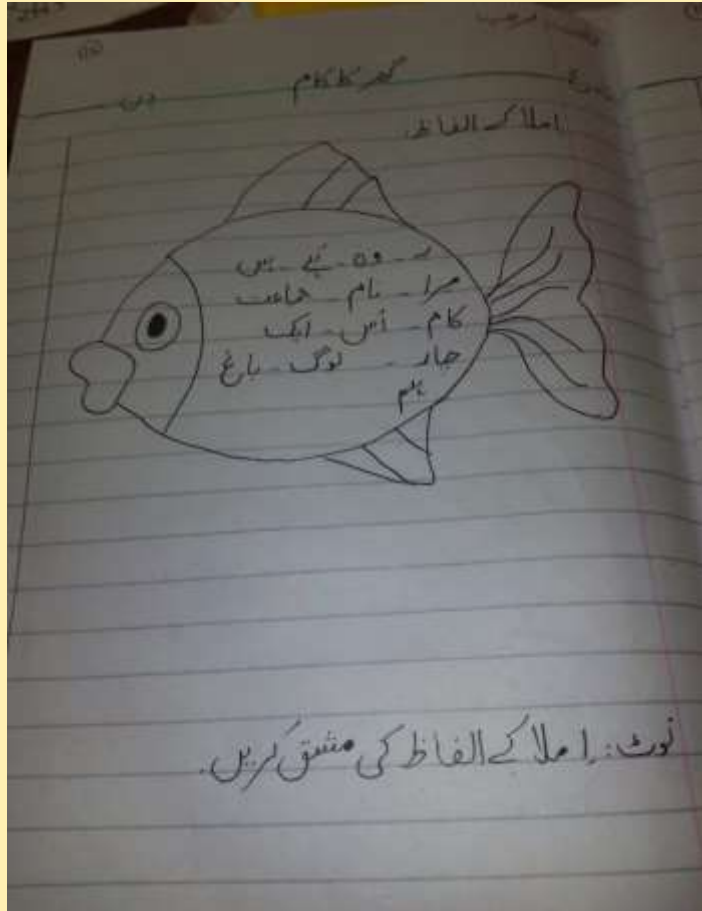 گھر کا کام
املا کے الفاظ
وہ - ہے - ہیں
مرا - نام - جماعت
کام - اس - ایک
چار - لوگ - باغ
ہم
نوٹ: اِملا کے الفاظ کی مشق کریں.